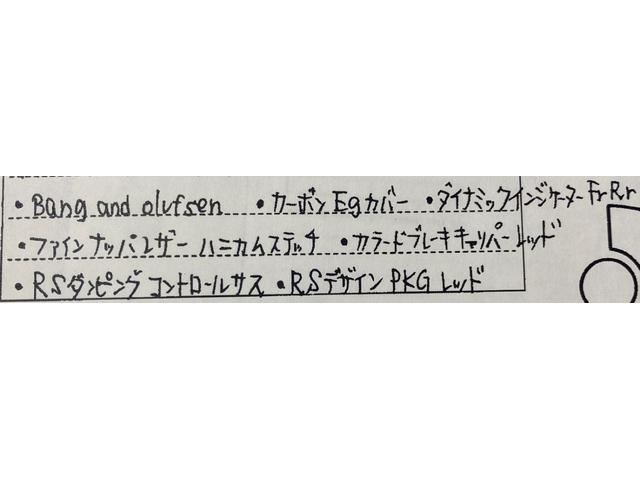 ・Bang and olufsen ・カーボンEgカバー ・ダイナミックインジケーターFrRr
・ファインナッパレザーハニカムステッチ ・カラードブレーキキャリパーレッド
・RSダンピングコントロールサス ・RSデザインPKGレッド